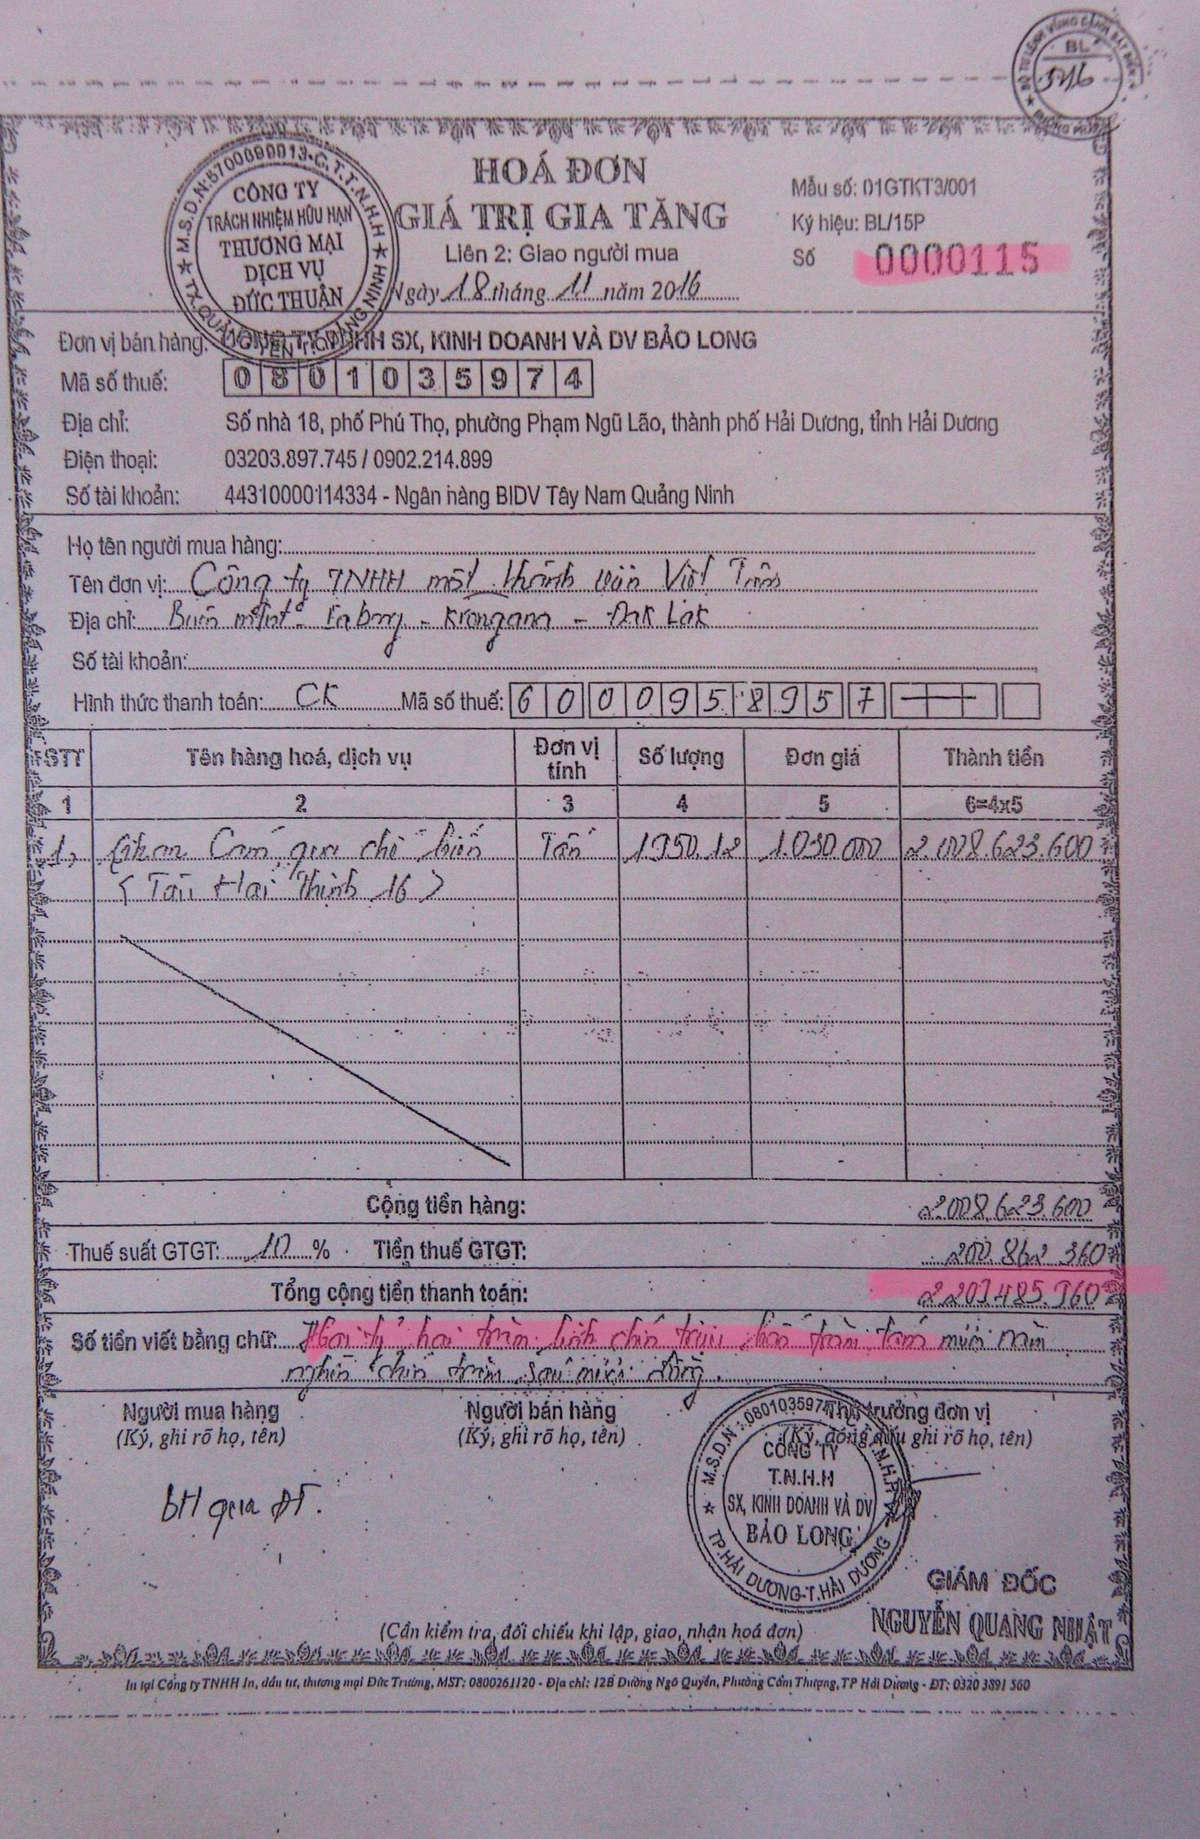 BL
516
HOÁ ĐƠN
GIÁ TRỊ GIA TĂNG
Liên 2: Giao người mua
Ngày 18 tháng 11 năm 2016
Mẫu số: 01GTKT3/001
Ký hiệu: BL/15P
Số 0000115
M.S.D.N:5700690013-C.T.T.N.H.H
CÔNG TY
TRÁCH NHIỆM HỮU HẠN
THƯƠNG MẠI
DỊCH VỤ
ĐỨC THUẬN
Đơn vị bán hàng: CÔNG TY TNHH SX, KINH DOANH VÀ DV BẢO LONG
Mã số thuế: 0801035974
Địa chỉ: Số nhà 18, phố Phú Thọ, phường Phạm Ngũ Lão, thành phố Hải Dương, tỉnh Hải Dương
Điện thoại: 03203.897.745 / 0902.214.899
Số tài khoản: 44310000114334 - Ngân hàng BIDV Tây Nam Quảng Ninh
Họ tên người mua hàng:
Tên đơn vị: Công ty TNHH một thành viên Việt Trân
Địa chỉ: Buôn - Eabong - Krongana - Đak Lak
Số tài khoản:
Hình thức thanh toán: CK Mã số thuế: 6000958957
STT Tên hàng hoá, dịch vụ Đơn vị tính Số lượng Đơn giá Thành tiền
1 2 3 4 5 6=4x5
1, Than Cám qua chế biến Tấn 1950.12 1.030.000 2.008.623.600
(Tàu Hải Thịnh 16)
Cộng tiền hàng: 2.008.623.600
Thuế suất GTGT: 10 % Tiền thuế GTGT: 200.862.360
Tổng cộng tiền thanh toán: 2.209.485.960
Số tiền viết bằng chữ: Hai tỷ hai trăm linh chín triệu bốn trăm tám mươi năm
nghìn chín trăm sáu mươi đồng.
Người mua hàng Người bán hàng Thủ trưởng đơn vị
(Ký, ghi rõ họ, tên) (Ký, ghi rõ họ, tên) (Ký, đóng dấu ghi rõ họ, tên)
BH qua ĐT.
CÔNG TY
T.N.H.H
SX, KINH DOANH VÀ DV
BẢO LONG
TP.HẢI DƯƠNG-T.HẢI DƯƠNG
GIÁM ĐỐC
NGUYỄN QUANG NHẬT
(Cần kiểm tra, đối chiếu khi lập, giao, nhận hoá đơn)
In tại Công ty TNHH In, đầu tư, thương mại Đức Trường, MST: 0800261120 - Địa chỉ: 12B Đường Ngô Quyền, Phường Cẩm Thượng, TP Hải Dương - ĐT: 0320 3891 560